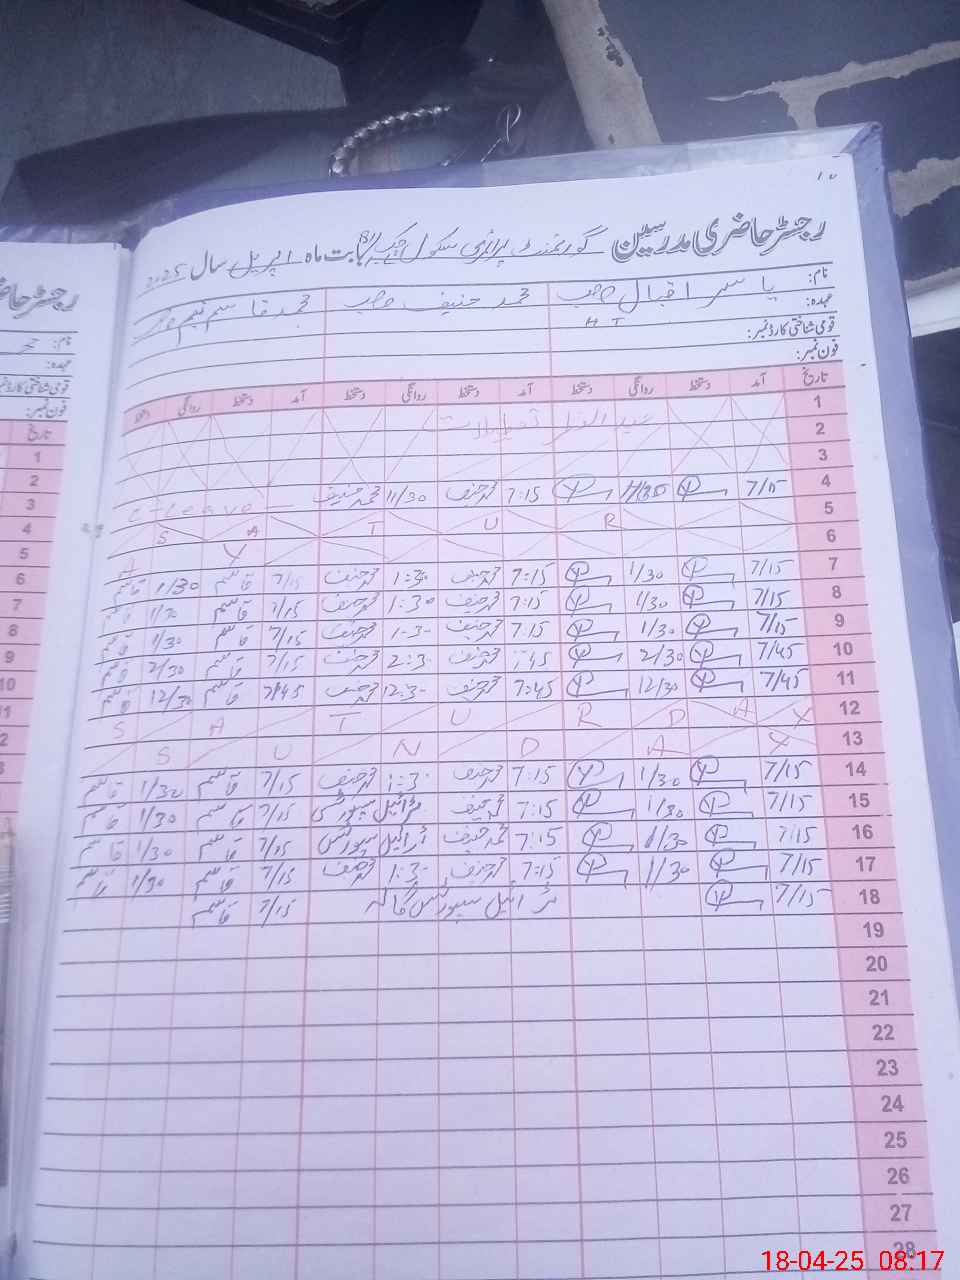 رجسٹر حاضری مدرسین گورنمنٹ پرائمری سکول بابت ماہ اپریل سال 2025
نام: یاسر اقبال صاحب محمد حنیف صاحب محمد قاسم
عہدہ: H T
قومی شناختی کارڈ نمبر:
فون نمبر:
تاریخ آمد دستخط روانگی دستخط آمد دستخط روانگی دستخط آمد دستخط روانگی دستخط
1
2 عید الفطر تعطیلات
3
4 7/15 7:15 محمد حنیف 11/30 محمد حنیف C-Leave
5 S A T U R
6 A Y
7 7/15 1/30 7:15 محمد حنیف 1:30 محمد حنیف 7/15 قاسم 1/30 قاسم
8 7/15 1/30 7:15 محمد حنیف 1:30 محمد حنیف 7/15 قاسم 1/30 قاسم
9 7/15 1/30 7:15 محمد حنیف 1:30 محمد حنیف 7/15 قاسم 1/30 قاسم
10 7/45 2/30 7:45 محمد حنیف 2:30 محمد حنیف 7/15 قاسم 2/30 قاسم
11 7/45 12/30 7:45 محمد حنیف 12:30 محمد حنیف 7/45 قاسم 12/30 قاسم
12 S A T U R D A Y
13 S U N D A Y
14 7/15 1/30 7:15 محمد حنیف 1:30 محمد حنیف 7/15 قاسم 1/30 قاسم
15 7/15 1/30 7:15 محمد حنیف ٹرائیل سپورٹس 7/15 قاسم 1/30 قاسم
16 7/15 1/30 7:15 محمد حنیف ٹرائیل سپورٹس 7/15 قاسم 1/30 قاسم
17 7/15 1/30 7:15 محمد حنیف 1:30 محمد حنیف 7/15 قاسم 1/30 قاسم
18 7/15 ٹرائیل سپورٹس 7/15 قاسم
19
20
21
22
23
24
25
26
27
28
رجسٹر حاضری
نام:
عہدہ:
قومی شناختی کارڈ نمبر
فون نمبر:
تاریخ
1
2
3
4
5
6
7
8
9
10
18-04-25 08:17